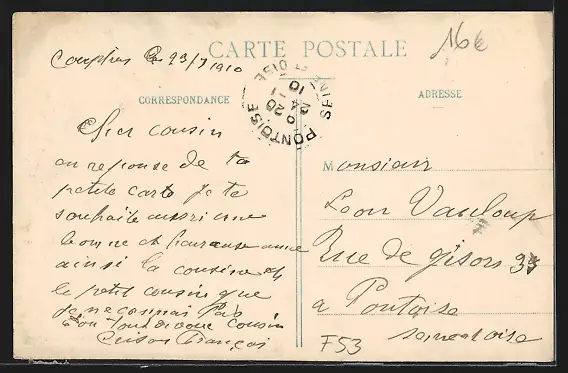 CARTE POSTALE
16€
le 23/1 1910
CORRESPONDANCE
ADRESSE
PONTOISE
SEINE-ET-OISE
Cher cousin
en reponse de ta
petite carte je te
souhaite aussi une
bonne et heureuse année
ainsi la cousine et
le petit cousin que
je ne connai pas
Ton cousin
François
Monsieur
Leon Vauloup
Rue de gisors 33
a Pontoise
seine et oise
F53